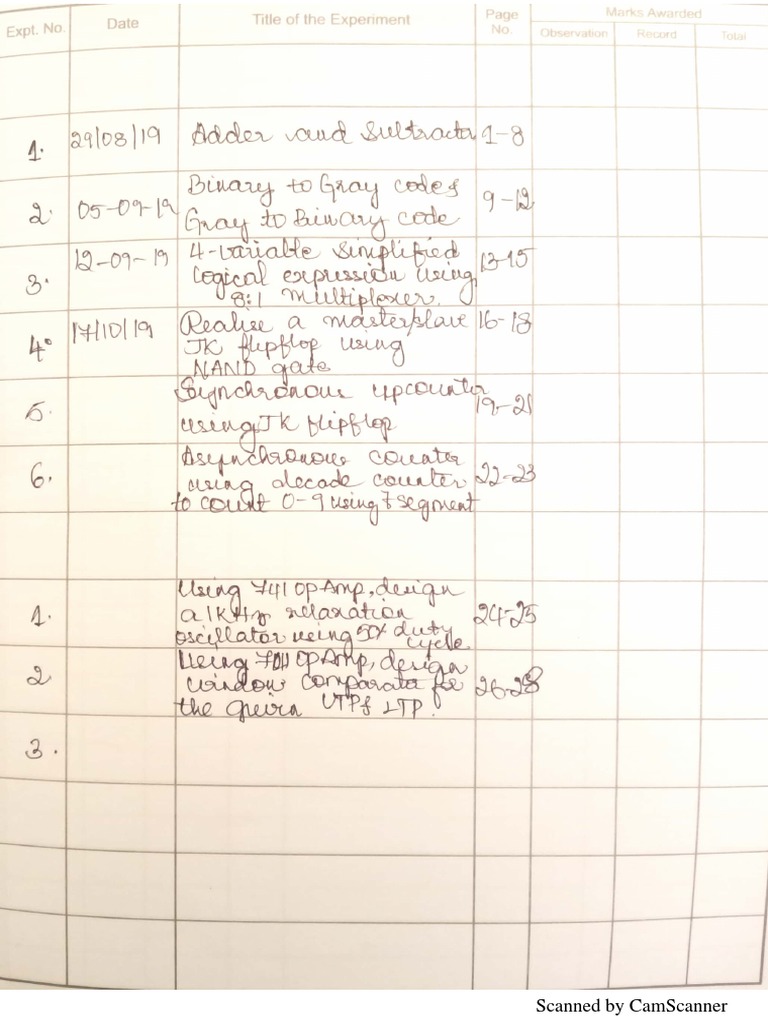 Expt. No. Date Title of the Experiment Page No. Marks Awarded
Observation Record Total
1. 29/08/19 Adder and Subtractor 1-8
2. 05-09-19 Binary to Gray code &
Gray to Binary code 9-12
3. 12-09-19 4-variable simplified
logical expression using 13-15
8:1 multiplexer.
4. 17/10/19 Realise a masterslave 16-18
JK flipflop using
NAND gate
5. Synchronous upcounter
using JK flipflop 19-21
6. Asynchronous counter
using decade counter 22-23
to count 0-9 using 7 segment
1. Using 741 op Amp, design
a 1KHz relaxation 24-25
oscillator using 50% duty
cycle
2 Using 741 op Amp, design
window comparator for 26-28
the given UTP & LTP.
3.
Scanned by CamScanner